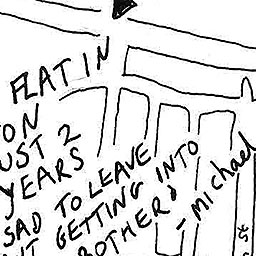 FLAT IN
ON
UST 2
YEARS
SAD TO LEAVE
UT GETTING INTO
BOTHER!
- michael